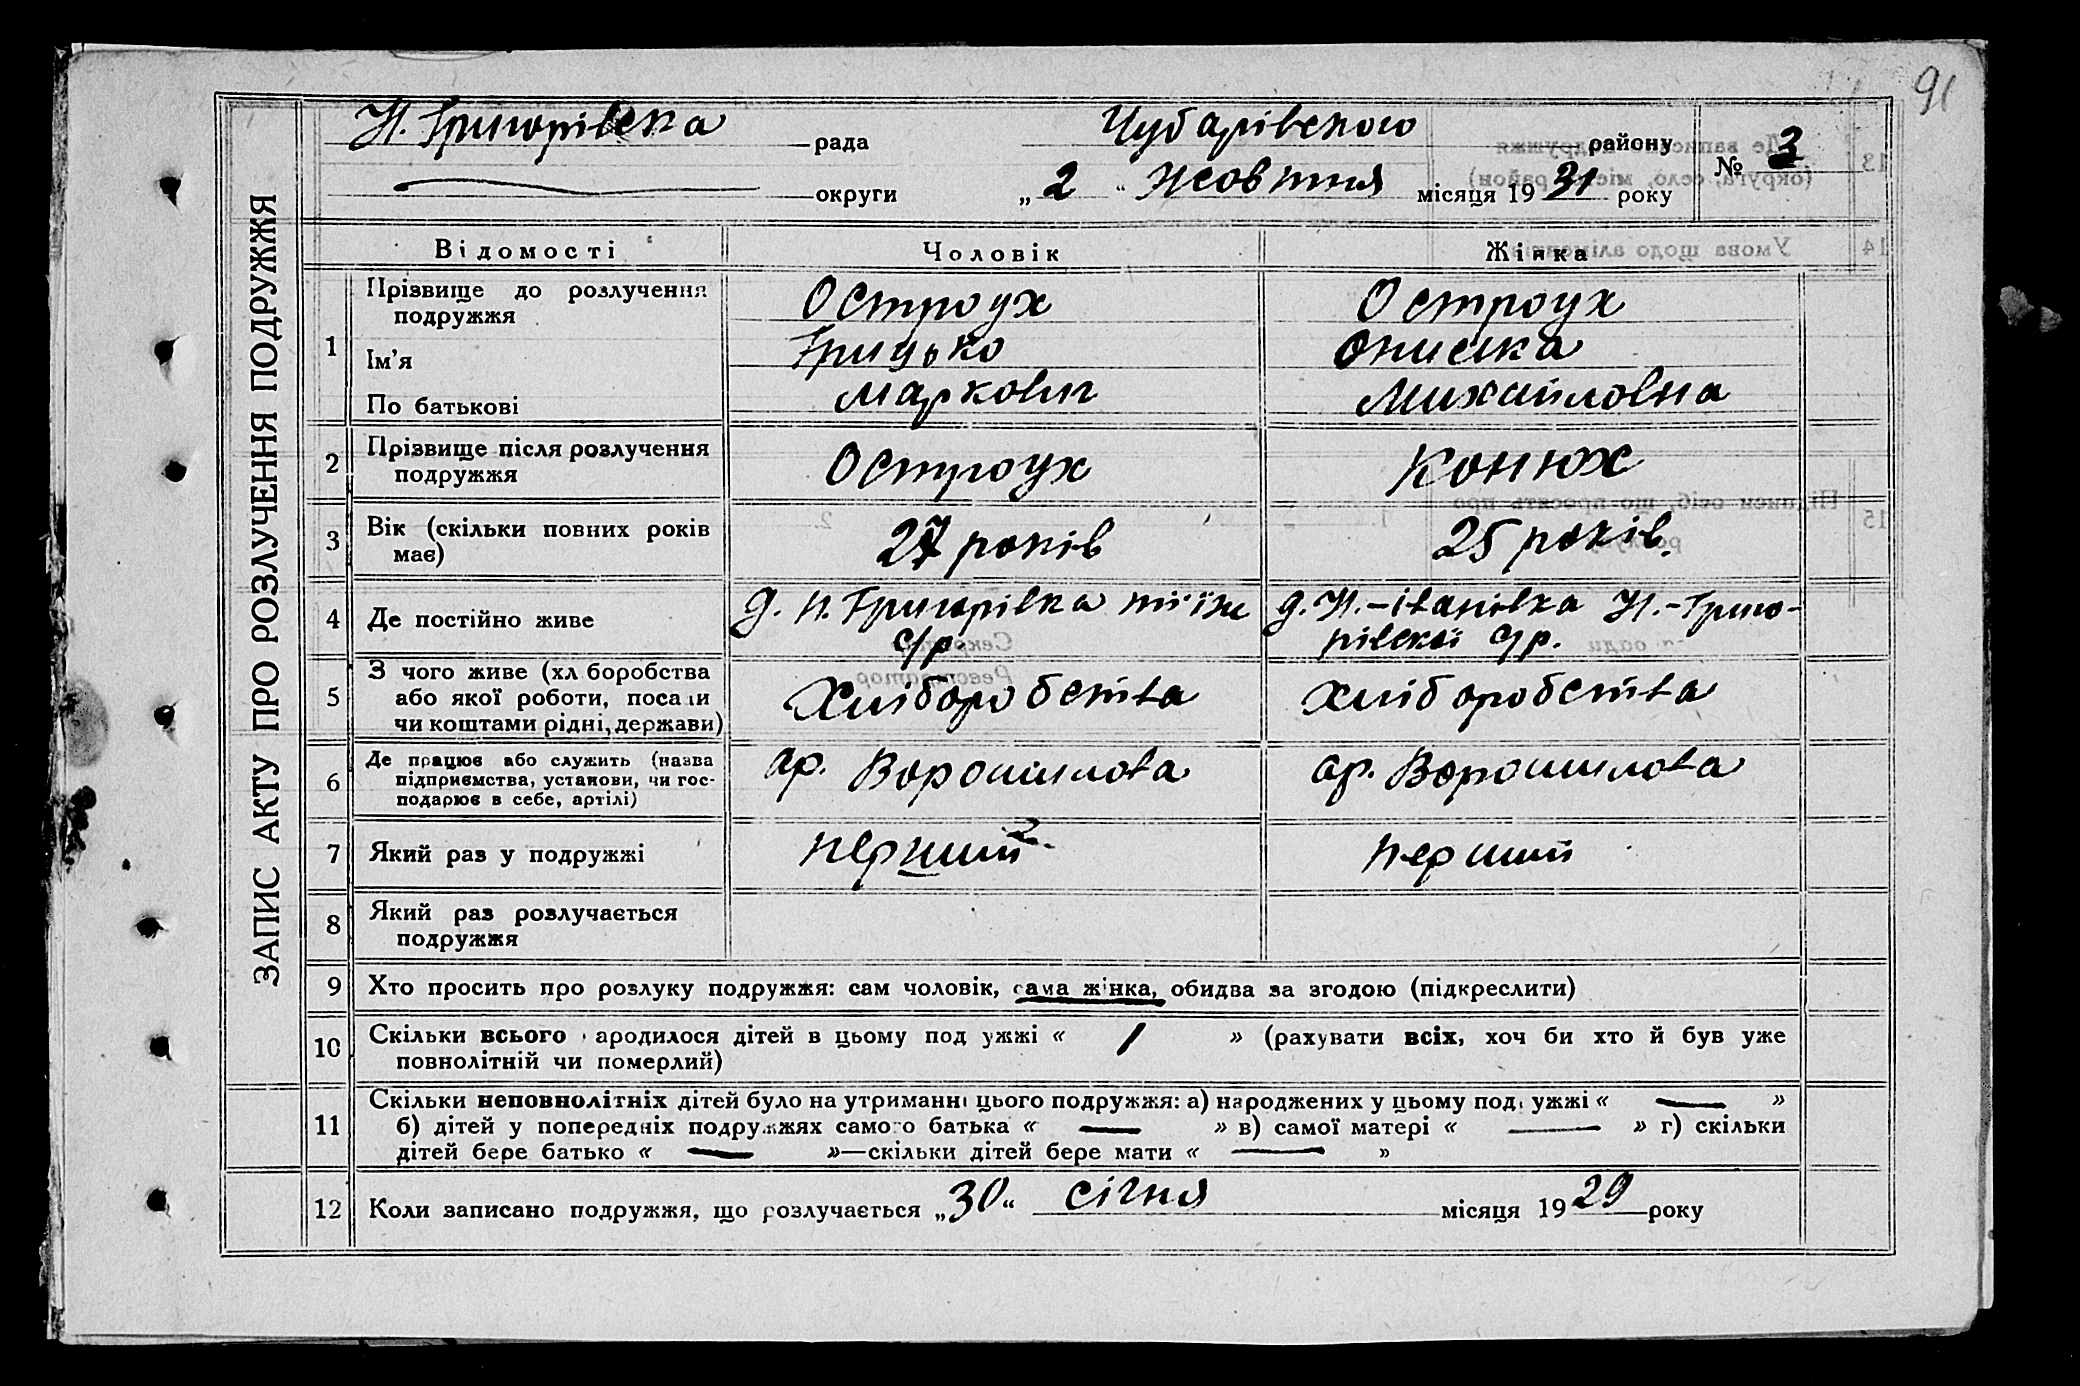 91
Н. Григорівска рада Чубарівского району № 3
округи „2“ Жовтня місяця 1931 року
ЗАПИС АКТУ ПРО РОЗЛУЧЕННЯ ПОДРУЖЖЯ
Відомості Чоловік Жінка
1 Прізвище до розлучення подружжя Остроух Остроух
Ім’я Грицько Онишка
По батькові Маркович Михайловна
2 Прізвище після розлучення
подружжя Остроух Конюх
3 Вік (скільки повних років
має) 27 років 25 років.
4 Де постійно живе д. Н. Григорівка с/р д. Н.-Іванівка Н.-Григо-
рівскої с/р.
5 З чого живе (хліборобства
або якої роботи, посади
чи коштами рідні, держави) Хліборобства Хліборобства
6 Де працює або служить (назва
підприємства, установи, чи гос-
подарює в себе, артілі) ар. Ворошилова ар. Ворошилова
7 Який раз у подружжі перший 2 перший
8 Який раз розлучається
подружжя
9 Хто просить про розлуку подружжя: сам чоловік, сама жінка, обидва за згодою (підкреслити)
10 Скільки всього народилося дітей в цьому подружжі « 1 » (рахувати всіх, хоч би хто й був уже
повнолітній чи померлий)
11 Скільки неповнолітніх дітей було на утриманні цього подружжя: а) народжених у цьому подружжі « — »
б) дітей у попередніх подружжях самого батька « — » в) самої матері « — » г) скільки
дітей бере батько « — »—скільки дітей бере мати « — »
12 Коли записано подружжя, що розлучається „30“ січня місяця 1929 року